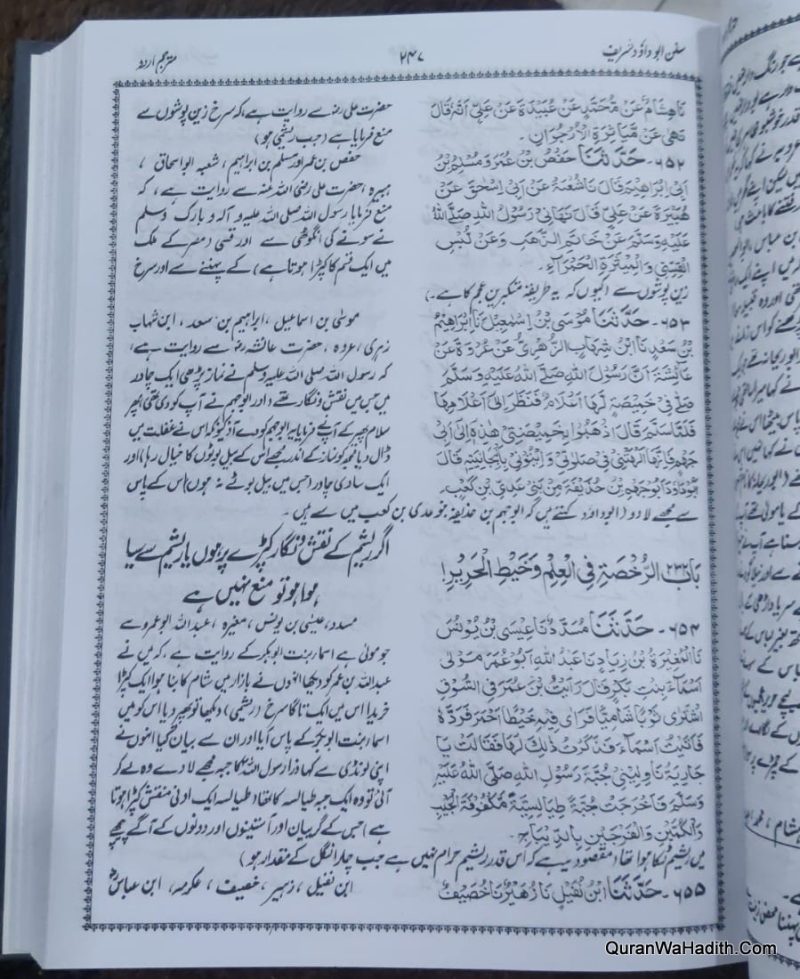 سنن ابو داؤد شریف
۲۴۷
مترجم اردو
نا هشام عن محمد عن عبيدة عن علي انه قال
نهى عن مياثرة الارجوان۔
۶۵۲۔ حدثنا حفص بن عمر ومسلم بن
ابراهيم قالا نا شعبة عن ابى اسحق عن
هبيرة عن علي قال نهانى رسول الله صلى الله
عليه وسلم عن خاتم الذهب وعن لبس
القسي والميثرة الحمراء۔
حضرت علی رضہ سے روایت ہے کہ سرخ زین پوشوں سے
منع فرمایا ہے (جب ریشمی ہو)
حفص بن عمر اور مسلم بن ابراہیم ، شعبہ ابو اسحاق ،
ہبیرہ ، حضرت علی رضی اللہ عنہ سے روایت ہے ، کہ
منع فرمایا رسول اللہ صلی اللہ علیہ و آلہ و بارک وسلم
نے سونے کی انگوٹھی سے اور قسی (مصر کے ملک
میں ایک قسم کا کپڑا ہوتا ہے) کے پہننے سے اور سرخ
زین پوشوں سے (کیوں کہ یہ طریقہ متکبرین عجم کا ہے۔)
۶۵۳۔ حدثنا موسى بن اسمعيل نا ابراهيم
بن سعد نا ابن شهاب الزهرى عن عروة عن
عائشة ان رسول الله صلى الله عليه وسلم
صلى فى خميصة لها اعلام فنظر الى اعلامها
فلما سلم قال اذهبوا بخميصتى هذه الى ابى
جهم فانها الهتنى فى صلوتى واتونى بانبجانيته قال
ابوداود ابو جهم بن حذيفة من بنى عدى بن كعب۔
موسی بن اسماعیل ، ابراہیم بن سعد ، ابن شہاب
زہری ، عروہ ، حضرت عائشہ رضہ سے روایت ہے ،
کہ رسول اللہ صلی اللہ علیہ وسلم نے نماز پڑھی ایک چادر
میں جس میں نقش و نگار تھے (اور ابوجہم نے آپ کو دی تھی) پھر
سلام پھیر کے آپ نے فرمایا یہ ابوجہم کو دے آؤ کیونکہ اس نے غفلت میں
ڈال دیا مجھ کو نماز کے اندر مجھے اس کے بیل بوٹوں کا خیال رہا ، اور
ایک سادی چادر (جس میں بیل بوٹے نہ ہوں) اس کے پاس
سے مجھے لا دو (ابوداؤد کہتے ہیں کہ ابو جہم بن حذیفہ بنو عدی بن کعب میں سے ہیں ۔
باب ۲۳۲ الرخصة فى العلم وخيط الحرير!
اگر ریشم کے نقش و نگار کپڑے پر ہوں یا ریشم سے سیا
ہوا ہو تو منع نہیں ہے
۶۵۴۔ حدثنا مسدد نا عيسى بن يونس
نا المغيرة بن زياد نا عبد الله ابو عمر مولى
اسماء بنت ابى بكر قال رايت بن عمر فى السوق
اشترى ثوبا شاميا فراى فيه خيطا احمر فرده
فاتيت اسماء فذكرت ذلك لها فقالت يا
جارية ناولينى جبة رسول الله صلى الله عليه
وسلم فاخرجت جبة طيالسية مكفوفة الجيب
والكمين والفرجين بالديباج۔
مسدد ، عیسٰی بن یونس ، مغیرہ ، عبد اللہ ابو عمرو سے
جو مولٰی ہے اسماء بنت ابوبکر کے روایت ہے ، کہ میں نے
عبداللہ بن عمر کو دیکھا انہوں نے بازار میں شام کا بنا ہوا ایک کپڑا
خریدا اس میں ایک تاگا سرخ (ریشمی) دیکھا تو پھیر دیا اس کو میں
اسماء بنت ابوبکر کے پاس آیا اور ان سے بیان کیا انہوں نے
اپنی لونڈی سے کہا ذرا رسول اللہ کا جبہ مجھے لا دے وہ لے کر
آئی تو وہ ایک جبہ طیالسہ کا تھا (طیالسہ ایک اونی منقش کپڑا ہوتا
ہے) جس کے گریبان اور آستینوں اور دونوں کے آگے پیچھے
میں ریشم ٹنکا ہوا تھا (مقصود یہ ہے کہ اس قدر ریشم حرام نہیں ہے جب چار انگل کے مقدار ہو)
۶۵۵۔ حدثنا ابن نفيل نا زهير نا خصيف
ابن نفیل ، زہیر ، خصیف ، عکرمہ ، ابن عباس رضہ
QuranWaHadith.Com